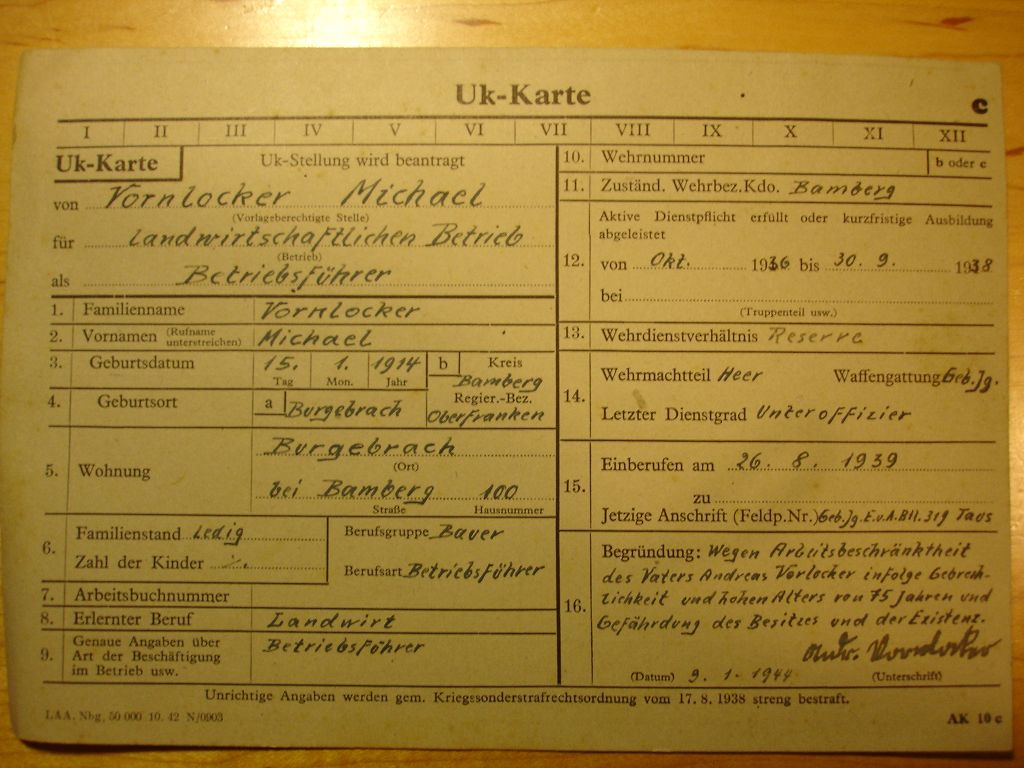 Uk-Karte
c
I II III IV V VI VII VIII IX X XI XII
Uk-Karte
Uk-Stellung wird beantragt
von Vornlocker Michael
(Vorlageberechtigte Stelle)
für landwirtschaftlichen Betrieb
(Betrieb)
als Betriebsführer
1. Familienname Vornlocker
2. Vornamen (Rufname unterstreichen) Michael
3. Geburtsdatum 15. 1. 1914
Tag Mon. Jahr
b Kreis
Bamberg
Regier.-Bez.
Oberfranken
4. Geburtsort a Burgebrach
5. Wohnung Burgebrach
(Ort)
bei Bamberg 100
Straße Hausnummer
6. Familienstand Ledig
Zahl der Kinder ./.
Berufsgruppe Bauer
Berufsart Betriebsführer
7. Arbeitsbuchnummer
8. Erlernter Beruf Landwirt
9. Genaue Angaben über
Art der Beschäftigung
im Betrieb usw.
Betriebsführer
10. Wehrnummer
b oder c
11. Zuständ. Wehrbez.Kdo. Bamberg
12. Aktive Dienstpflicht erfüllt oder kurzfristige Ausbildung
abgeleistet
von Okt. 1936 bis 30. 9. 1938
bei
(Truppenteil usw.)
13. Wehrdienstverhältnis Reserve
14. Wehrmachtteil Heer Waffengattung Geb.Jg.
Letzter Dienstgrad Unteroffizier
15. Einberufen am 26. 8. 1939
zu
Jetzige Anschrift (Feldp.Nr.) Geb.Jg.E.u.A.Btl. 319 Taus
16. Begründung: Wegen Arbeitsbeschränktheit
des Vaters Andreas Vorlocker infolge Gebrech-
lichkeit und hohen Alters von 75 Jahren und
Gefährdung des Besitzes und der Existenz.
Andr. Vornlocker
(Datum) 9. 1. 1944 (Unterschrift)
Unrichtige Angaben werden gem. Kriegssonderstrafrechtsordnung vom 17. 8. 1938 streng bestraft.
LAA. Nbg. 50 000 10. 42 N/0903
AK 10 c